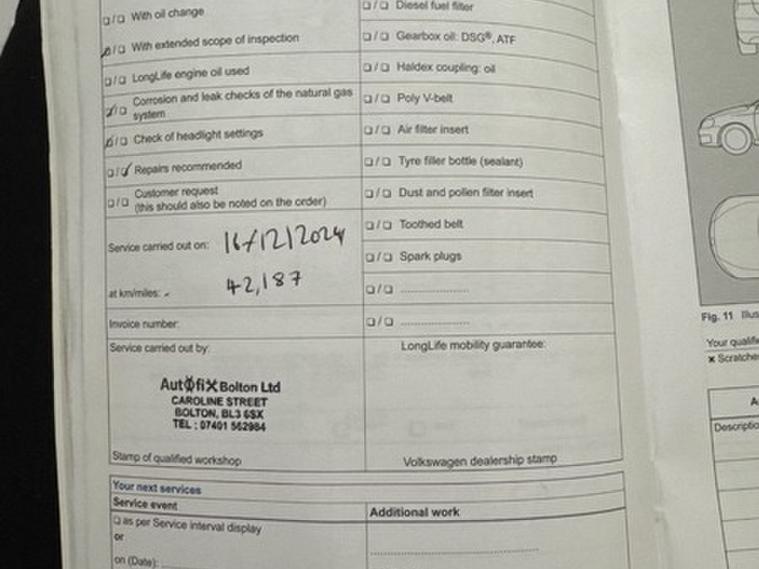 ☐/☐ With oil change
☑/☐ With extended scope of inspection
☐/☐ LongLife engine oil used
☑/☐ Corrosion and leak checks of the natural gas
system
☑/☐ Check of headlight settings
☐/☑ Repairs recommended
☐/☐ Customer request
(this should also be noted on the order)
Service carried out on: 16/12/2024
at km/miles: 42,187
Invoice number:
Service carried out by:
Autofix Bolton Ltd
CAROLINE STREET
BOLTON, BL3 6SX
TEL : 07401 562984
Stamp of qualified workshop
☐/☐ Diesel fuel filter
☐/☐ Gearbox oil: DSG®, ATF
☐/☐ Haldex coupling: oil
☐/☐ Poly V-belt
☐/☐ Air filter insert
☐/☐ Tyre filler bottle (sealant)
☐/☐ Dust and pollen filter insert
☐/☐ Toothed belt
☐/☐ Spark plugs
☐/☐ ....................
☐/☐ ....................
LongLife mobility guarantee:
Volkswagen dealership stamp
Your next services
Service event
☐ as per Service interval display
or
on (Date):
Additional work
Fig. 11
Your
×